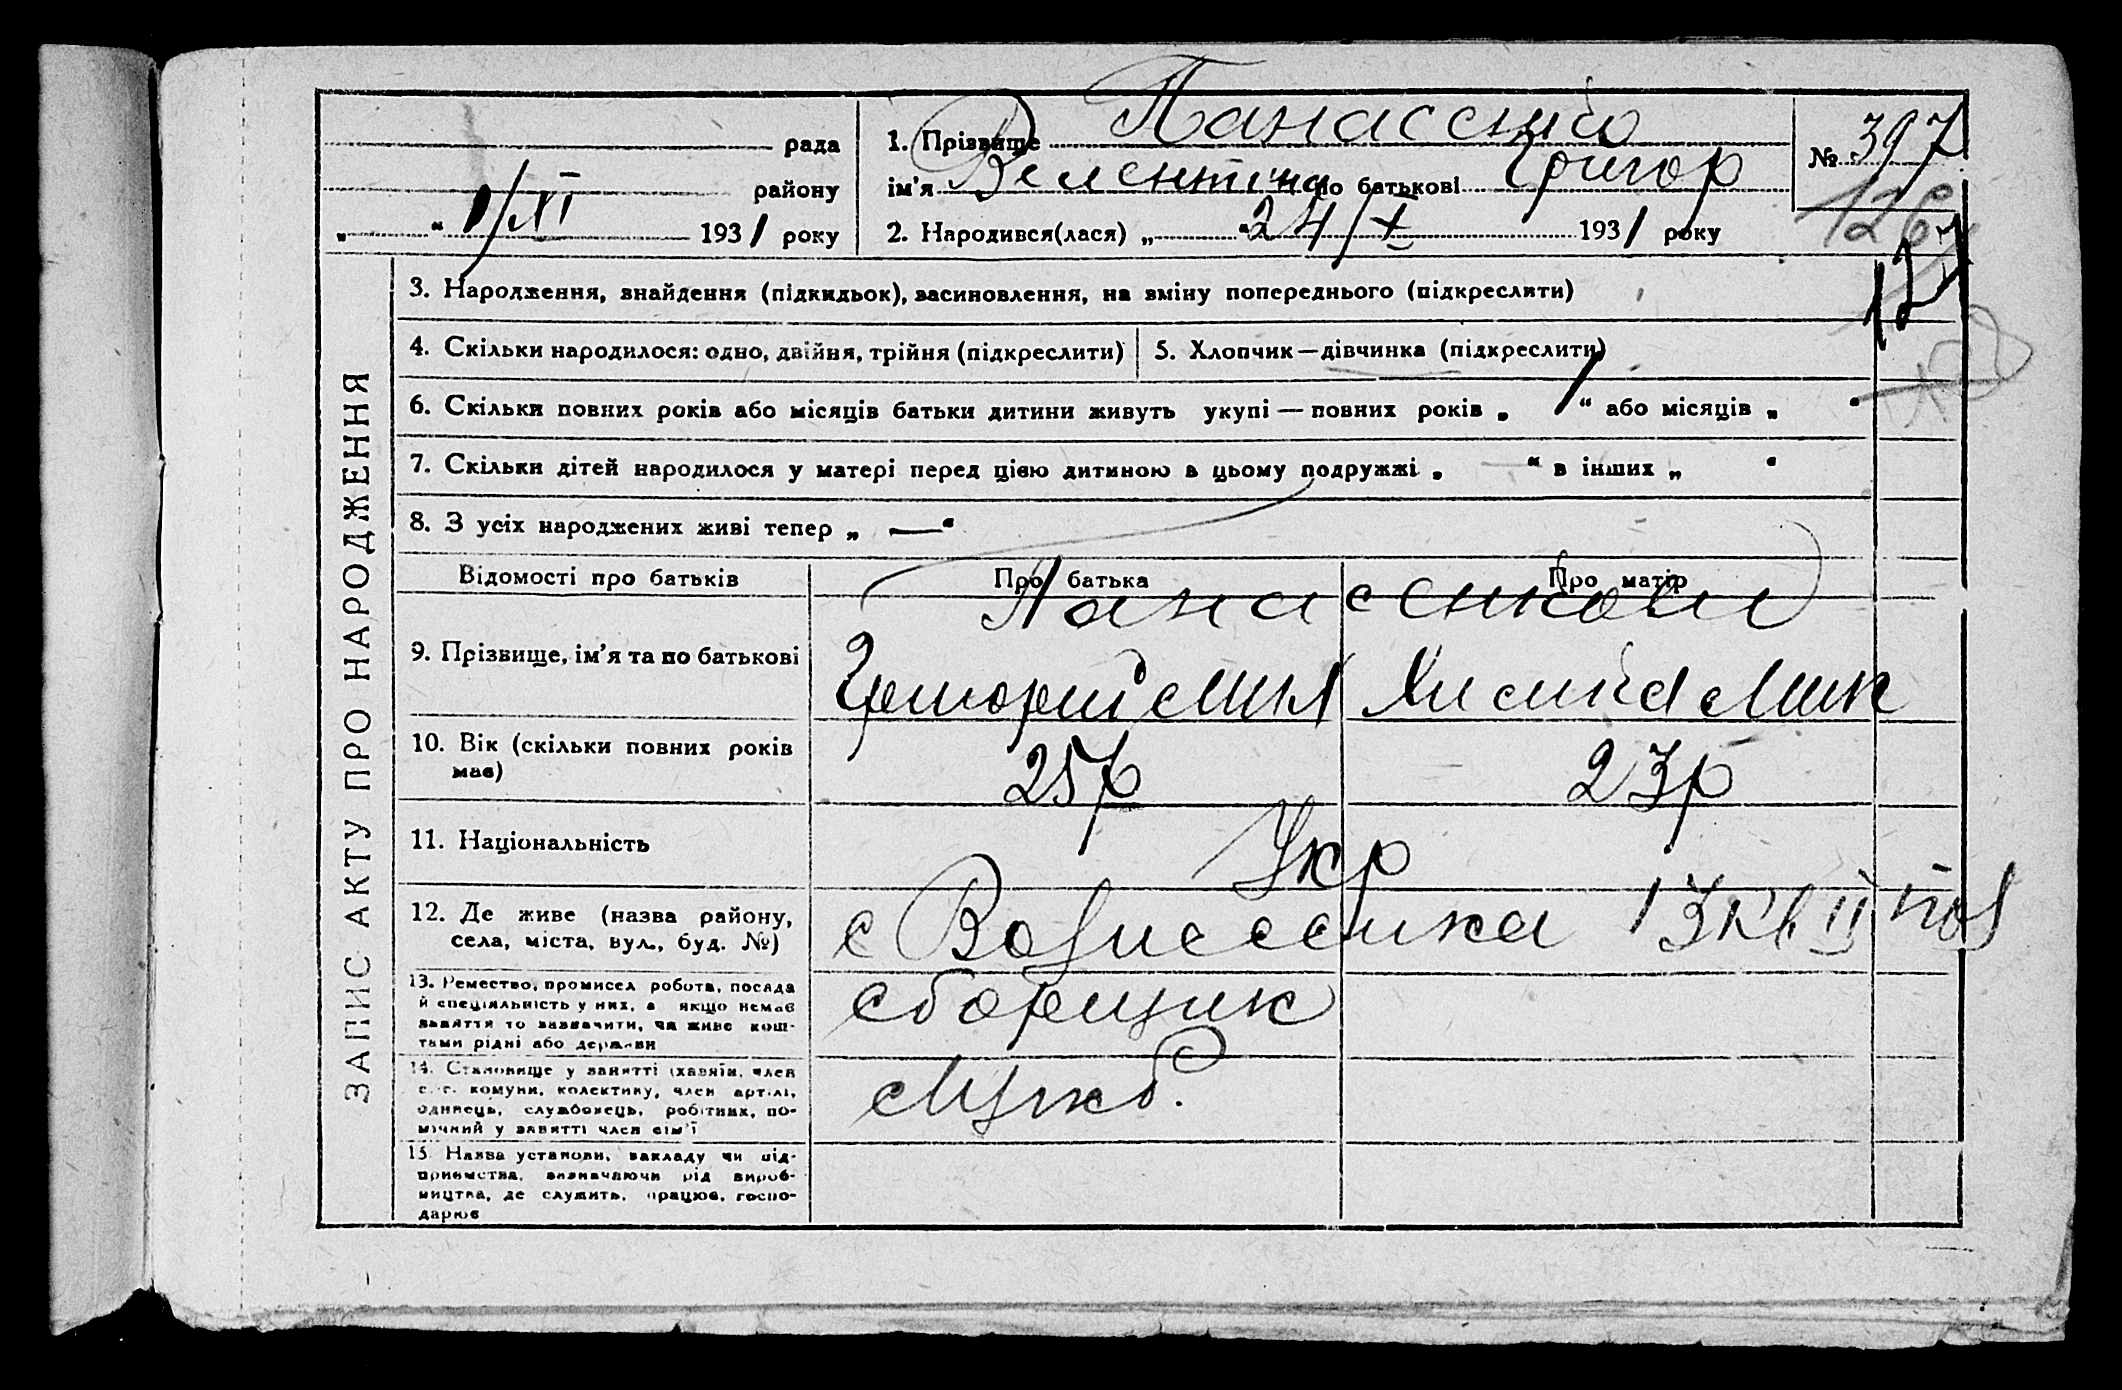 рада
району
„ “ 1/XI 1931 року
1. Прізвище Панасенко
ім’я Велентина по батькові Григор
2. Народився(лася) „ “ 24/X 1931 року
№ 397
126
127
ЗАПИС АКТУ ПРО НАРОДЖЕННЯ
3. Народження, знайдення (підкидьок), засиновлення, на зміну попереднього (підкреслити)
4. Скільки народилося: одно, двійня, трійня (підкреслити)
5. Хлопчик—дівчинка (підкреслити)
6. Скільки повних років або місяців батьки дитини живуть укупі — повних років „ 1 “ або місяців „ “
7. Скільки дітей народилося у матері перед цією дитиною в цьому подружжі „ — “ в інших „ “
8. З усіх народжених живі тепер „ — “
Відомості про батьків
Про батька
Про матір
9. Прізвище, ім’я та по батькові
Панасенкови
Григорий Мик
Мик
10. Вік (скільки повних років має)
25р
23р
11. Національність
Укр
12. Де живе (назва району, села, міста, вул., буд. №)
с Вознесенка 13 кв II пос
13. Ремество, промисел робота, посада й спеціяльність у них, а якщо немає заняття то зазначити, чи живе коштами рідні або держави
сборщик
14. Становище у занятті (хазяїн, член с.-г. комуни, колективу, член артілі, одинець, службовець, робітник, помічний у занятті член сім’ї
служб.
15. Назва установи, закладу чи підприємства, визначаючи рід виробництва, де служить, працює, господарює